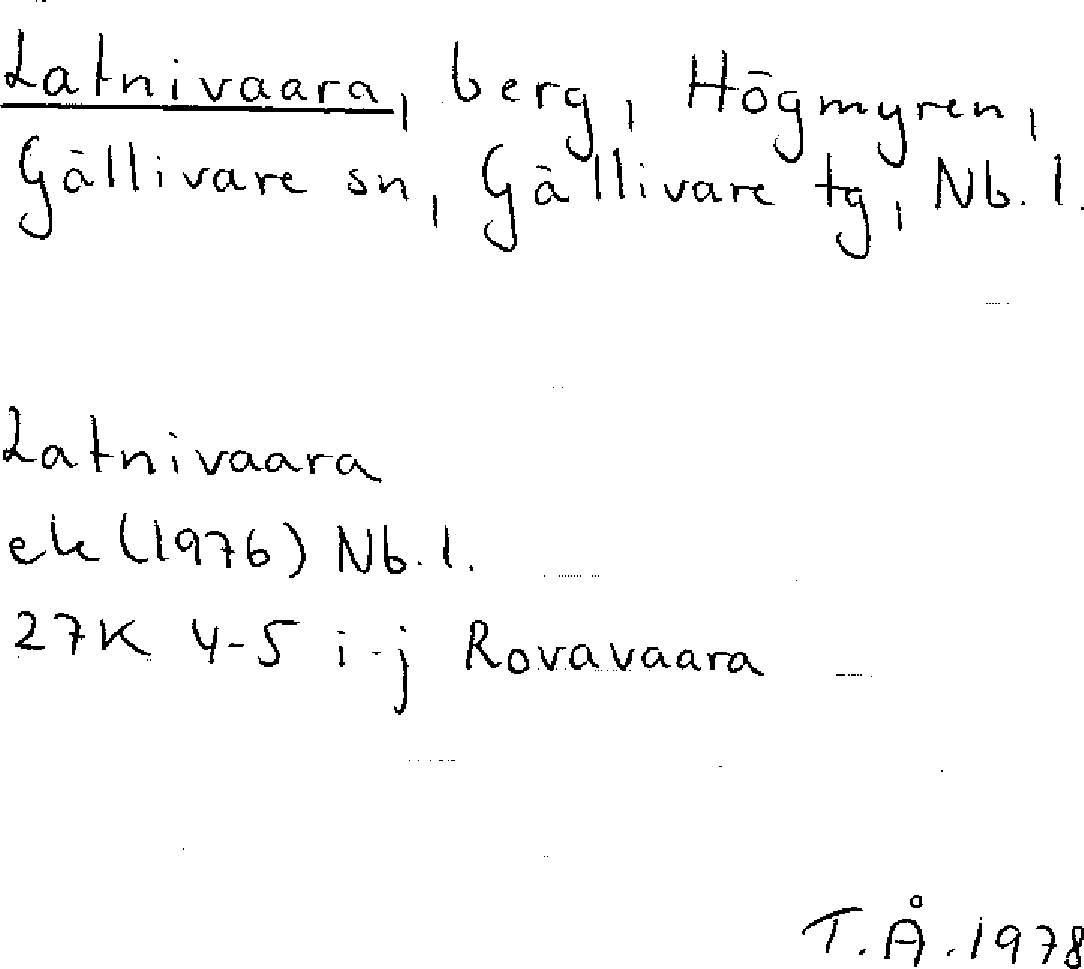 Latnivaara, berg, Högmyren,
Gällivare sn, Gällivare tg, Nb. l.
Latnivaara
ek (1976) Nb. l.
27K 4-5 i-j Rovavaara
T.Å. 1978